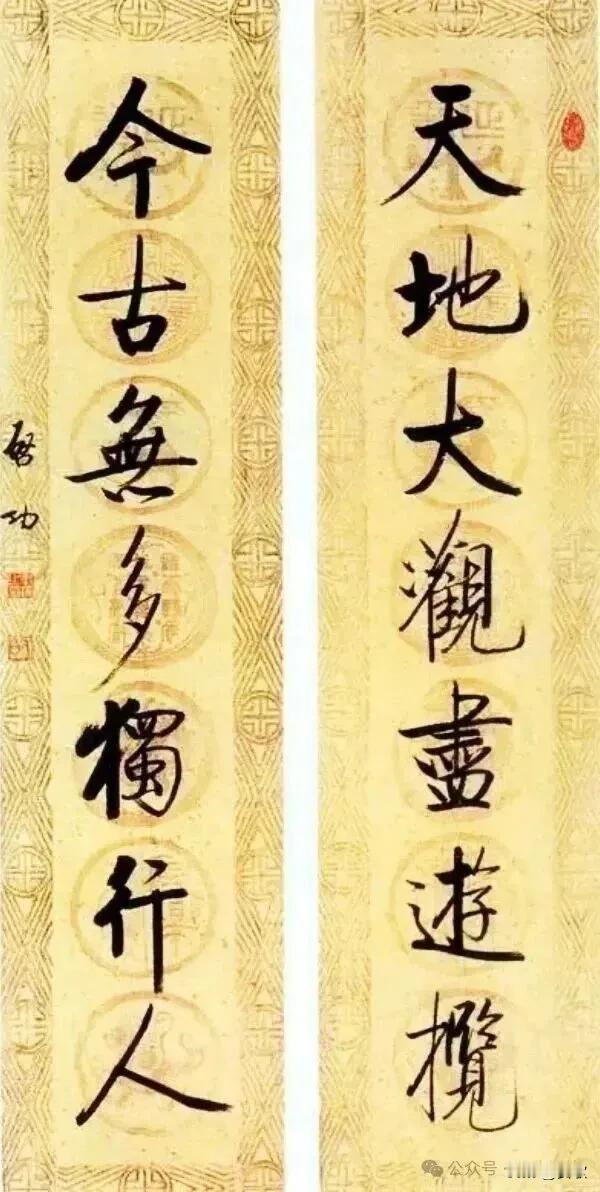 天地大觀盡遊攬
今古無多獨行人
啓功
公众号